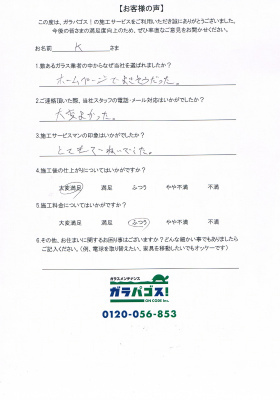 【お客様の声】
この度は、ガラパゴス!の施工サービスをご利用いただき誠にありがとうございました。
今後の皆さまの満足度向上のため、ぜひ率直なご意見をお聞かせください。
お名前 K さま
1.数あるガラス業者の中からなぜ当社を選ばれましたか?
ホームページでよさそうだった。
2.ご連絡頂いた際、当社スタッフの電話・メール対応はいかがでしたか?
大変よかった。
3.施工サービスマンの印象はいかがでしたか?
とてもていねいでした。
4.施工後の仕上がりについてはいかがですか?
大変満足 満足 ふつう やや不満 不満
5.施工料金についてはいかがですか?
大変満足 満足 ふつう やや不満 不満
6.その他、お住まいに関するお困り事はございますか?どんな細かい事でもありましたら
ご記入ください。(例、電球を取り替えたい、家具を移動したいでもオッケーです)
ガラスメンテナンス
ガラパゴス!
ON CODE Inc.
0120-056-853